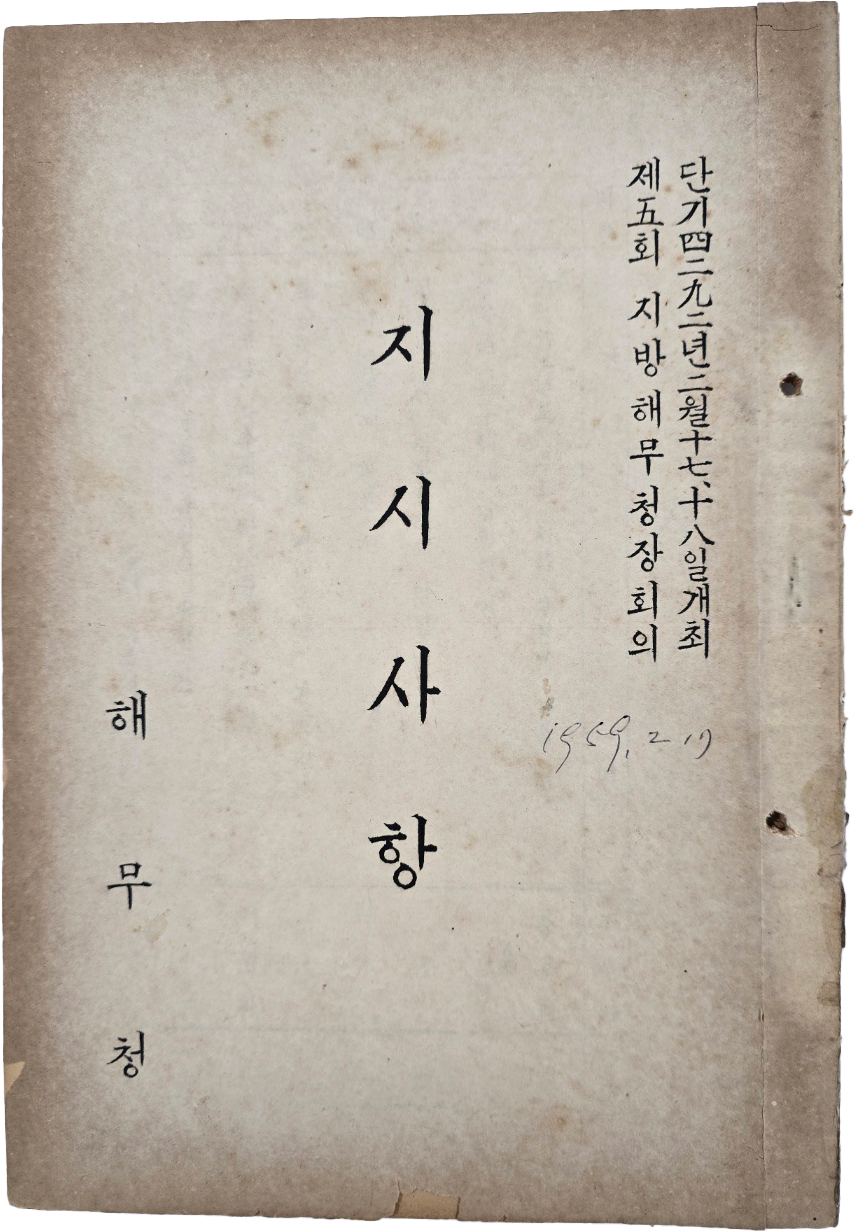 단기四二九二년二월十七、十八일개최
제五회 지방해무청장회의
지시사항
해무청
1959. 2 17